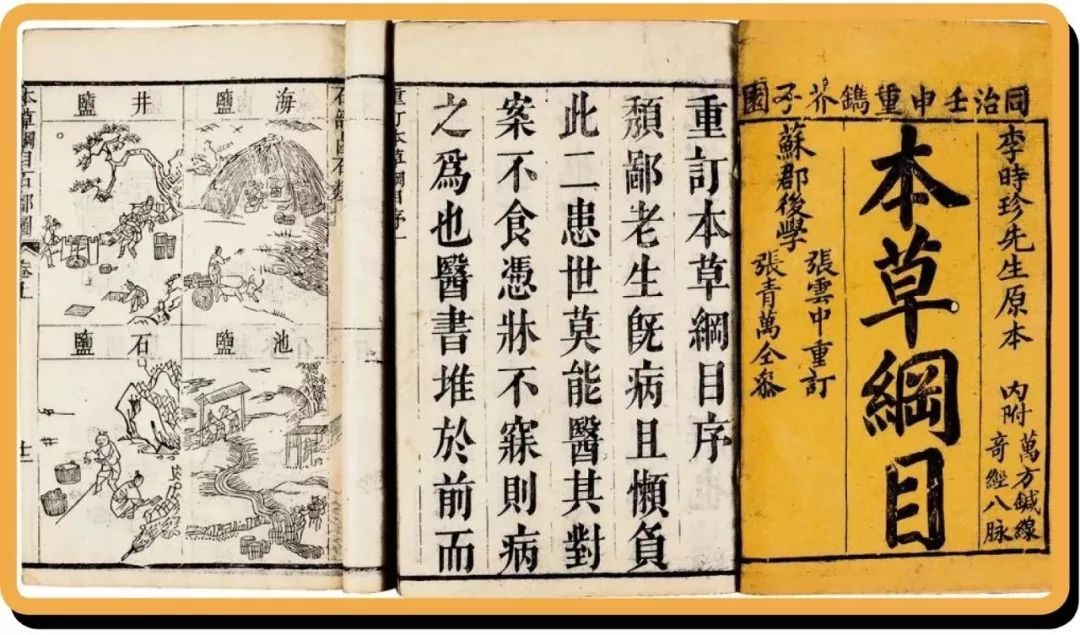 同治壬申重鐫芥子園
李時珍先生原本 內附
萬方鍼線
奇經八脉
本草綱目
張雲中重訂
蘇郡後學
張青萬仝叅
重訂本草綱目序
頹鄙老生旣病且懶負
此二患世莫能醫其對
案不食憑牀不寐則病
之爲也醫書堆於前而
重訂本草綱目序 一
石部鹵石類
海鹽
井鹽
池鹽
石鹽
本草綱目石部圖 卷上